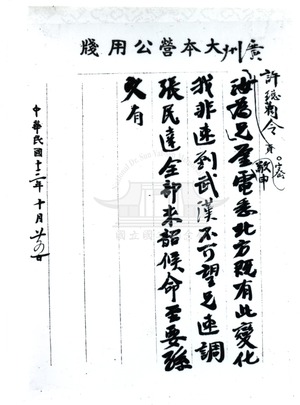 廣州大本營公用牋
許總司令
汝為兄電悉北方既有此變化
我非速到武漢不可望兄速調
張民達全部來韶候命至要孫
文有
中華民國十三年十月日